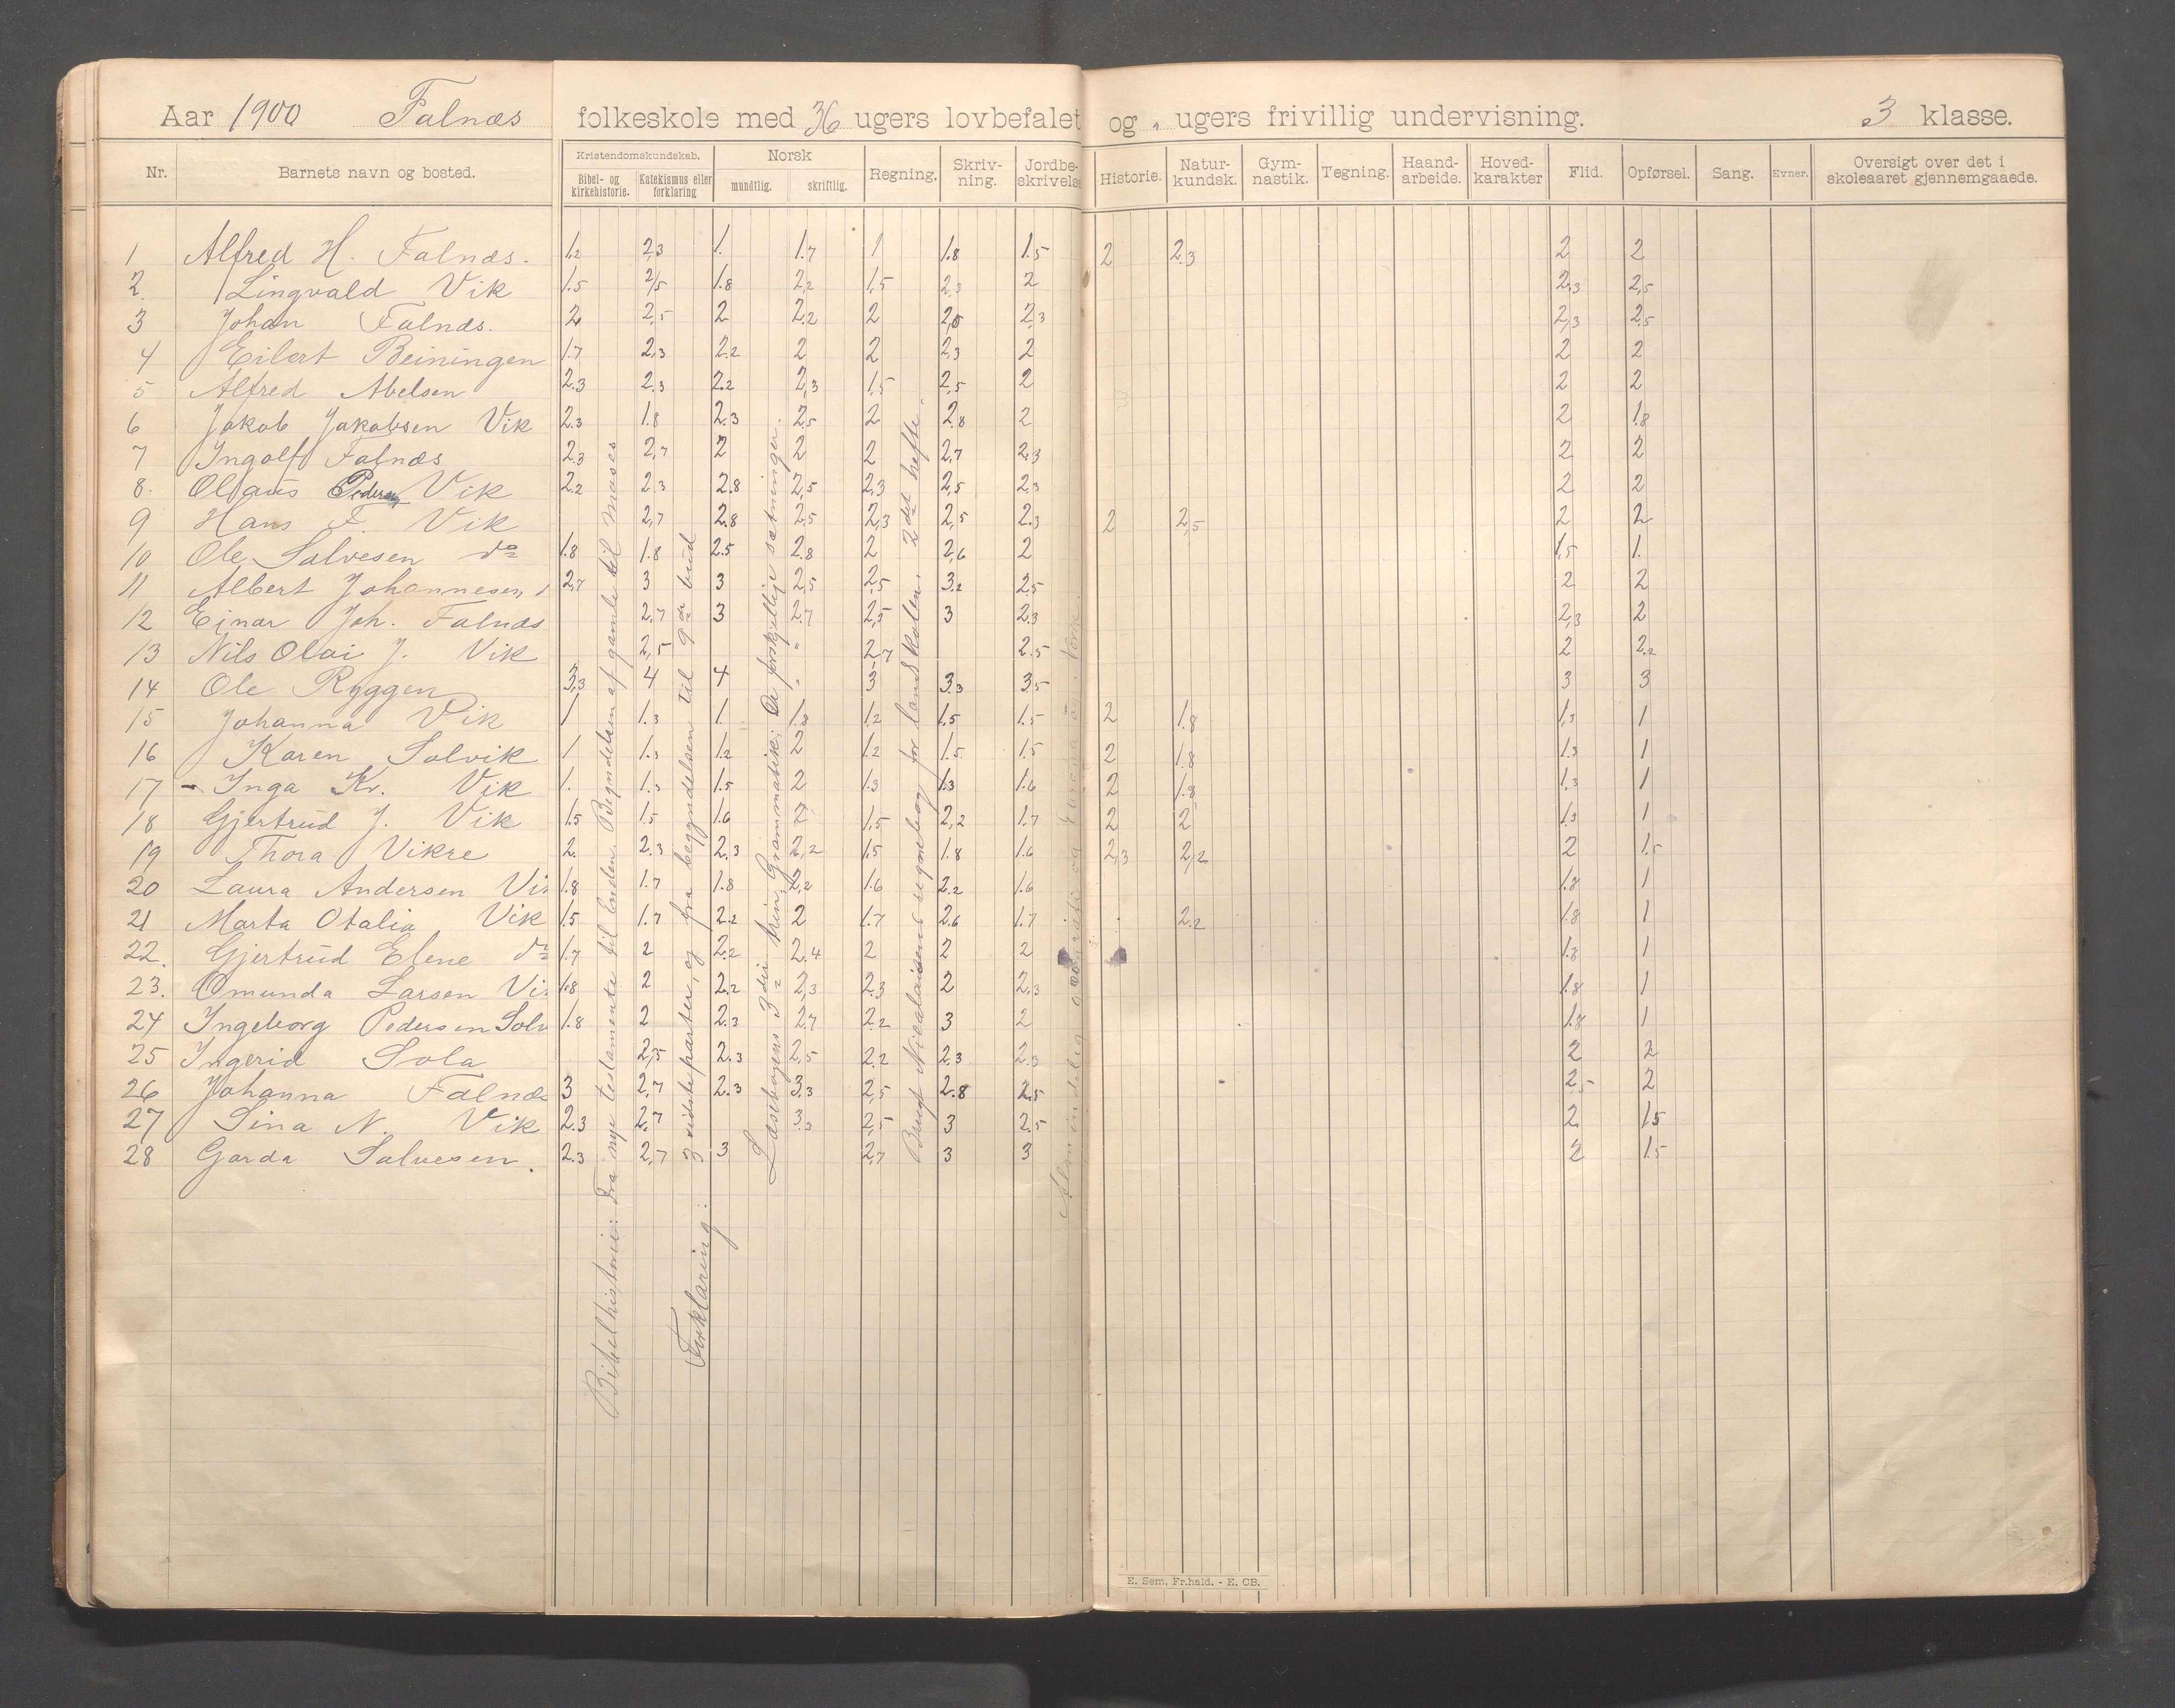 Aar 1900 Falnæs folkeskole med 36 ugers lovbefalet og „ ugers frivillig undervisning. 3 klasse.
Nr. Barnets navn og bosted. Kristendomskundskab. Bibel- og kirkehistorie. Katekismus eller forklaring Norsk mundtlig. skriftlig. Regning. Skriv-ning. Jordbe-skrivelse Historie. Natur-kundsk. Gym-nastik. Tegning. Haand-arbeide. Hoved-karakter Flid. Opførsel. Sang. Evner. Oversigt over det i skoleaaret gjennemgaaede.
1 Alfred H. Falnæs. 1.2 2,3 1. 1.7 1 1.8 1.5 2 2.3 2 2
2. Lingvald Vik 1.5 2/5 1.8 2,2 1,5 2,3 2 2,3 2,5
3 Johan Falnæs. 2 2,5 2 2.2 2 2,5 2,3 2,3 2,5
4 Eilert Beiningen 1.7 2,3 2.2 2 2 2,3 2 2 2
5 Alfred Abelsen 2.3 2.3 2.2 2,3 1,5 2,5 2 2 2
6 Jakob Jakobsen Vik 2.3 1.8 2.3 2,5 2 2.8 2 2 1.8
7 Ingolf Falnæs 2.3 2,7 2 2 2 2,7 2,3 2 2
8. Olaus Pedersen Vik 2.2 2.3 2.8 2,5 2,3 2,5 2.3 2 2
9 Hans F. Vik 2,7 2.8 2.5 2,3 2,5 2.3 2 2,5 2 2
10 Ole Salvesen do 1.8 1.8 2.5 2.8 2 2,6 2 1,5 1.
11 Albert Johannesen 2,7 3 3 2,5 2,5 3.2 2.5 2 2
12 Einar Joh. Falnæs 2.7 3 2.7 2,5 3 2.3 2,3 2
13 Nils Olai J. Vik 2,5 „ 2.7 2.5 2 2.2
14 Ole Ryggen 3,3 4 4 „ 3 3.3 3.5 3 3
15 Johanna Vik 1 1.3 1. 1.8 1.2 1.5 1.5 2 1.8 1,3 1
16 Karen Solvik 1 1.3 1.2 2 1.2 1.5. 1.5 2 1.8 1.3 1
17 Inga Kr. Vik 1. 1.5 1.5 2 1.3 1.3 1.6 2 1.8 1,3 1
18 Gjertrud J. Vik 1.5 1.5 1.6 2 1,5 2,2 1.7 2 2 1.3 1
19 Thora Vikre 2. 2.3 2.3 2,2 1.5 1.8 1.6 2,3 2,2 2 1.5
20 Laura Andersen Vi 1.8 1.7 1.8 2,2 1.6 2.2 1.6 1.8 1
21 Marta Otalia Vik 1.5 1.7 2.2 2 1.7 2.6 1.7 2.2 1.8 1
22. Gjertrud Elene do 1.7 2 2.2 2.4 2 2 2 1.8 1
23. Omunda Larsen Vi 1.8 2 2.2 2,3 2.3 2 2,3 1.8 1
24 Ingeborg Pedersen Solv 1.8 2 2.3 2.7 2.2 3 2 1.8 1
25 Ingerid Sola 2,5 2.3 2,5 2.2 2.3 2.3 2 2
26 Johanna Falnæs 3 2.7 2.3 3.3 2,5 2.8 2.5 2,5 2
27 Lina N. Vik 2.3 2.7 3.3 2,5 3 2.5 2. 1.5
28 Garda Salvesen. 2.3 2,7 3 2,7 3 3 2 1.5
Bibelhistorie: Fra nye testamente til Enden. Begyndelsen af gamle til Moses
Forklaring: 3 sidste parter, og fra begyndelsen til 9de bud
Læsebogens 3die trin, Grammatik: De forskjellige sætninger.
Brugt Nicolaisens regnebog for landskolen. 2det hefte.
Almindelig geografi og Europa
E. Sem, Fr.hald. - E. CB.